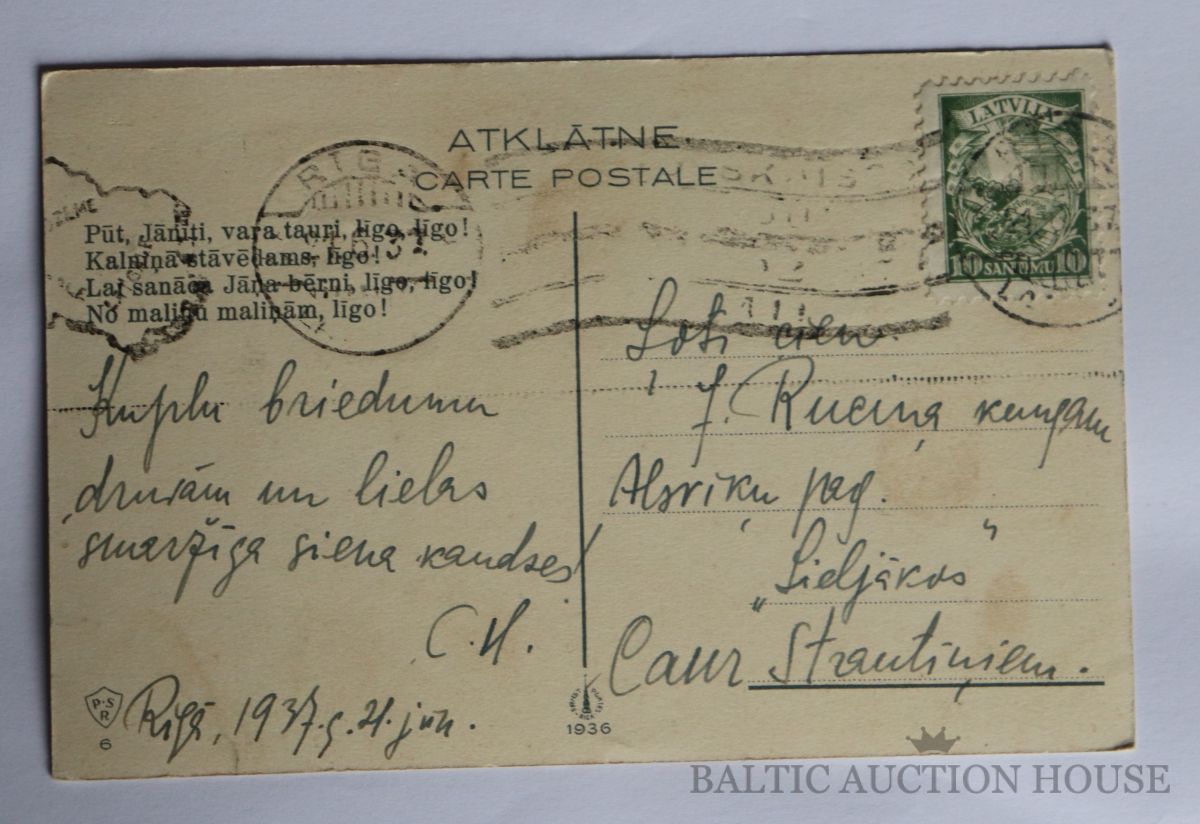 ATKLĀTNE
CARTE POSTALE
LATVIJA
10 SANTIMU 10
RIGA
Pūt, Jānīti, vara tauri, līgo, līgo!
Kalniņā stāvēdams, līgo!
Lai sanāca Jāņa bērni, līgo, līgo!
No maliņu maliņām, līgo!
Kuplu briedumu
druvām un lielas
smaržīga siena kaudzes!
C.H.
Rīgā, 1937.g. 21. jūn.
Ļoti cien.
J. Ruciņa kungam
Alsviķu pag.
„Lieljākos"
Caur Strautiņiem.
P.S
R
6
1936
BALTIC AUCTION HOUSE